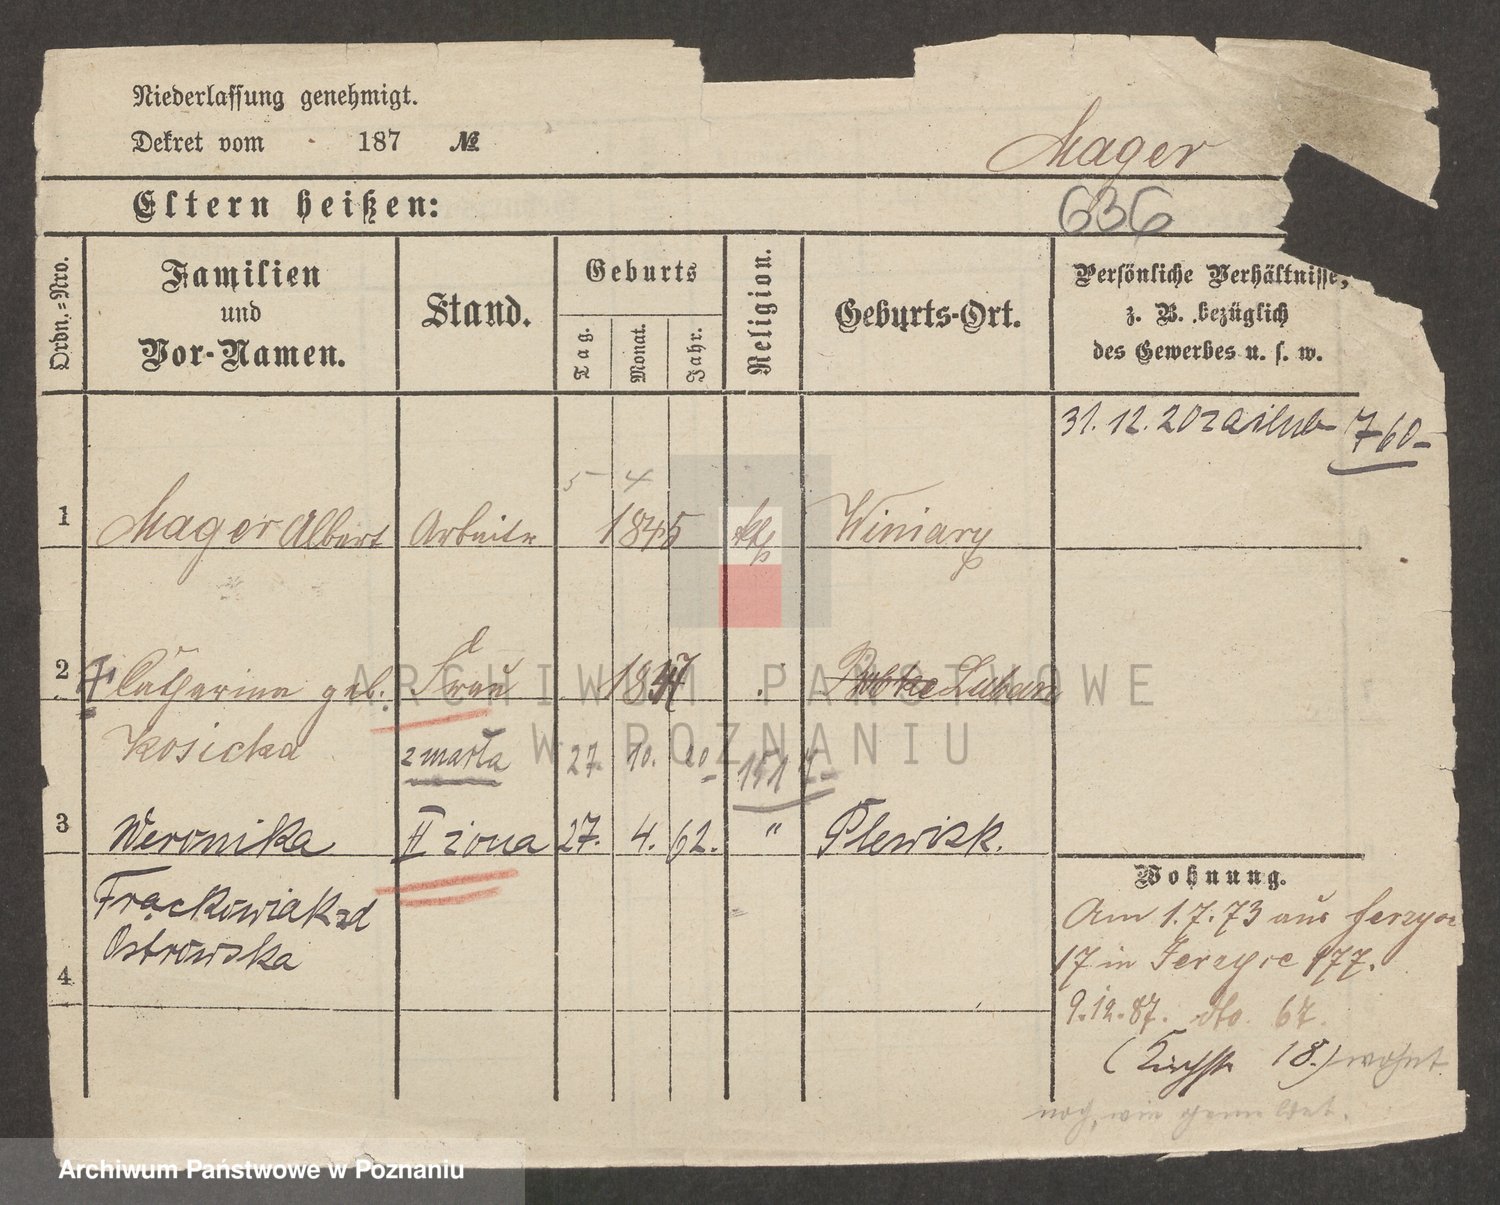 Niederlassung genehmigt.
Dekret vom 187 №
Mager
636
Eltern heißen:
Ordn.-Nro.
Familien
und
Vor-Namen.
Stand.
Geburts
Tag.
Monat.
Jahr.
Religion.
Geburts-Ort.
Persönliche Verhältnisse,
z. B. bezüglich
des Gewerbes u. s. w.
31. 12. 20 zaślub 760-
5 4
1 Mager Albert Arbeiter 1845 kth Winiary
2 Catharina geb. Frau 1847 Luban
Kosicka zmarła 27. 10. 20 151
3 Weronika II żona 27. 4. 62. " Plewisk.
Frąckowiak zd
Ostrowska
4
Wohnung.
Am 1.7.73 aus Jerzyce
17 in Jerzyce 177.
9.12.87. dto. 67.
(Kirchstr 18.) wohnt
noch, wie gemeldet.
ARCHIWUM PAŃSTWOWE
W POZNANIU
Archiwum Państwowe w Poznaniu